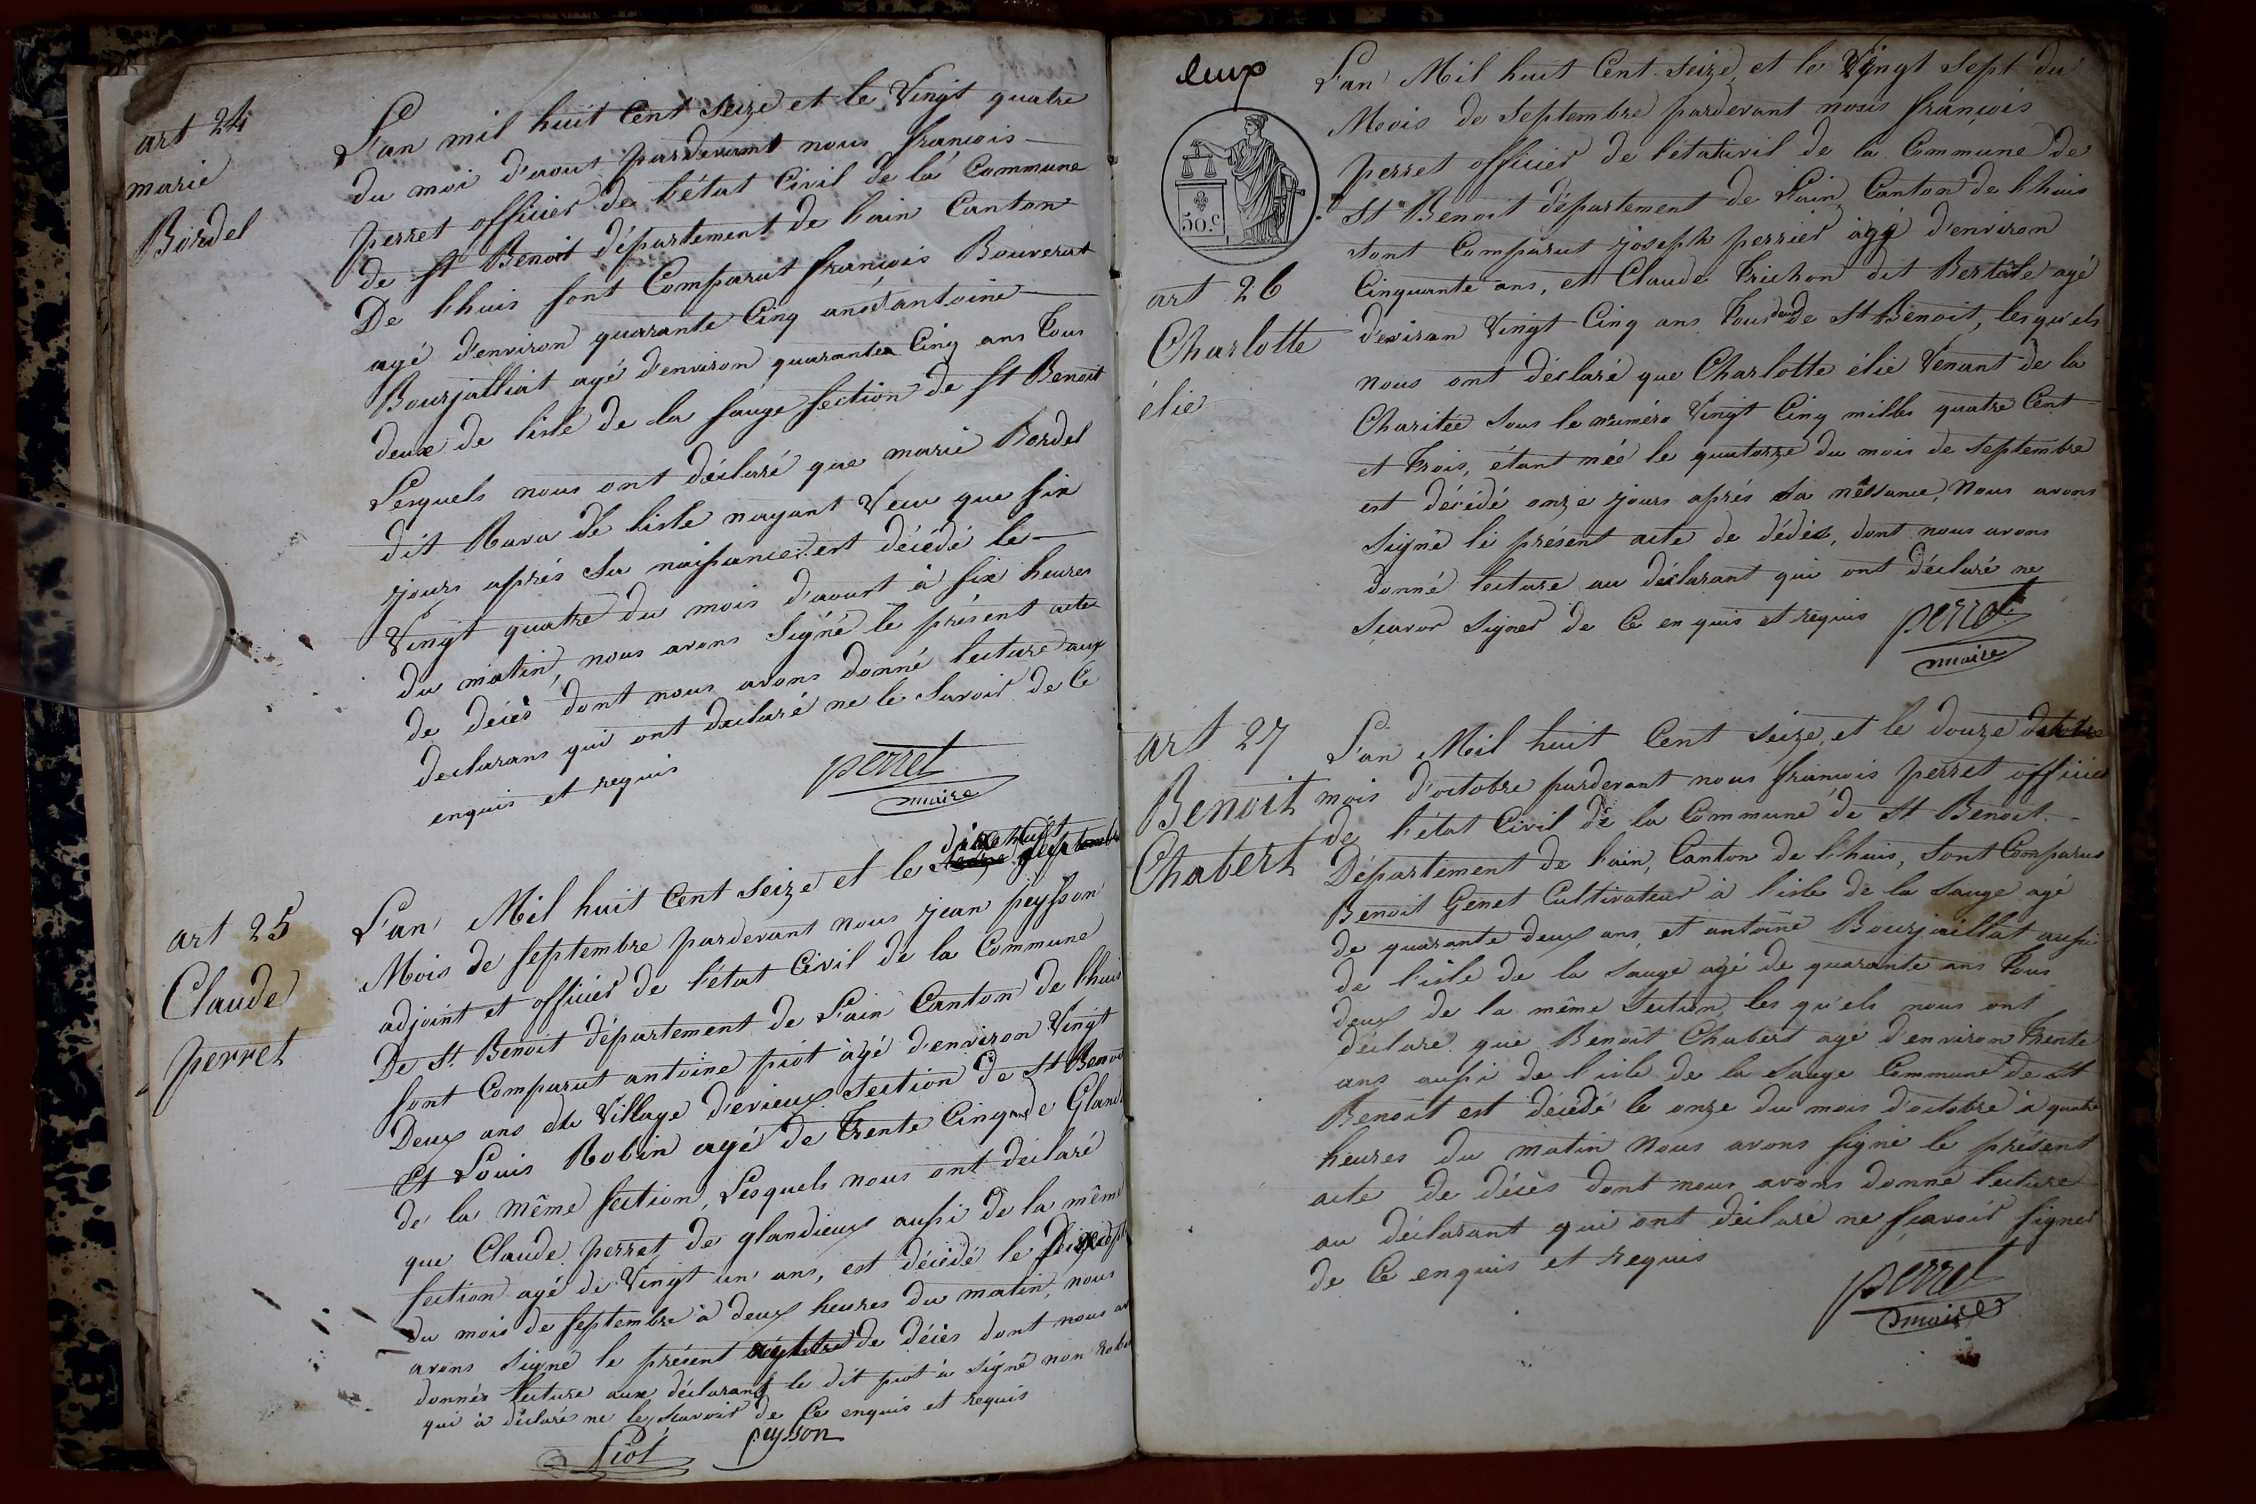 art 24
marie
Bordel
L'an mil huit Cent Seize et le Vingt quatre
du moi d'aout pardevant nous francois
perret officier de l'état Civil de la Commune
de St Benoit département de l'ain Canton
De lhuis sont Comparut francois Bouverat
agé d'environ quarante Cinq ans et antoine
Bourjalliat agé d'environ quarante Cinq ans tous
deux de lisle de la sauge section de St Benoit
Lesquels nous ont déclaré que marie Bordel
dit Rava de lisle nayant Vecu que six
jours aprés sa naissance est décédé le
Vingt quatre du mois d'aoust à six heures
du matin, nous avons Signé le présent acte
de décès dont nous avons donné lecture aux
declarans qui ont declaré ne le Savoir de Ce
enquis et requis
perret
maire
art 25
Claude
perret
dixe huit
L'an Mil huit Cent Seize et le septembre
Mois de septembre pardevant nous jean peysson
adjoint et officier de l'état Civil de la Commune
De St. Benoit département de L'ain Canton de lhuis
sont Comparut antoine piot àgé d'environ Vingt
Deux ans du Village d'evieux Section de St Benoit
Et Louis Robin agé de trente Cinq ans de Gland
de la même section, Lesquels nous ont déclaré
que Claude perret de glandieux aussi de la même
section agé de Vingt un ans, est décédé le
du mois de septembre à deux heures du matin, nous
avons signé le présent de décès dont nous av
donnés lecture aux déclarans le dit piot à Signé non Robin
qui à déclaré ne le Scavoir de Ce enquis et requis
Piot peysson
deux
50.c
art 26
Charlotte
élie
L'an Mil huit Cent Seize et le Vingt Sept du
Mois de Septembre pardevant nous francois
perret officier de l'etat civil de la Commune de
St Benoit département de L'ain Canton de lhuis
sont Comparut joseph perrier àgé d'environ
Cinquante ans, et Claude trichon dit Bertole agé
d'eviron Vingt Cinq ans tous deux de St Benoit, lesqu'els
nous ont déclaré que Charlotte élie Venant de la
Charitée Sous le numéro Vingt Cinq milles quatre Cent
et trois, étant née le quatorze du mois de septembre
est décédé onze jours aprés sa néssance, Nous avons
signé le présent acte de dédés, dont nous avons
donné lecture au déclarant qui ont déclaré ne
Scavor Signer de Ce en quis et requis perret
maire
art 27
Benoit
Chabert
L'an Mil huit Cent seize, et le douze
mois d'octobre pardevant nous francois perret officier
de l'état Civil de la Commune de St Benoit
Département de l'ain, Canton de lhuis, sont Comparus
Benoit Genet Cultivateur à l'isle de la Sauge agé
de quarante deux ans, et antoine Bourjaillat aussi
de l'isle de la Sauge agé de quarante ans tous
deux de la même Section, les qu'els nous ont
déclaré que Benoit Chabert agé d'environ trente
ans aussi de l'isle de la Sauge Commune de St
Benoit est décédé le onze du mois d'octobre à quatre
heures du matin Nous avons signé le présent
acte de décès dont nous avons donné lecture
au déclarant qui ont déclaré ne scavoir signer
de Ce enquis et requis
perret
maire